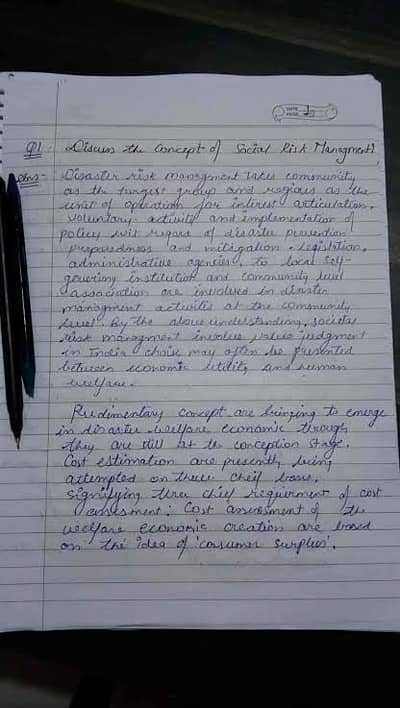 DATE
PAGE 1
Q1. Discuss the Concept of Social Risk Managment?
Ans- Disaster risk managment takes community
as the target group and regions as the
unit of operation for interest articulation,
voluntary activity and implementation of
policy with regard of disaster prevention
preparedness and mitigation. Legislation,
administrative agencies, to local self-
gouering institution and community level
association are involved in disaster
managment activities at the community
level. By the above understanding, societal
risk managment involves value judgment
in India choise may often be presented
between economic utility and human
welfare.
Rudimentary concept are bringing to emerge
in disaster welfare economic through
they are still at the conception stage.
Cost estimation are presently being
attempted on these cheif basis.
signifying three chief requirment of cost
assesment: Cost assesment of the
welfare economic creation are based
on the idea of 'consumer surplus'.